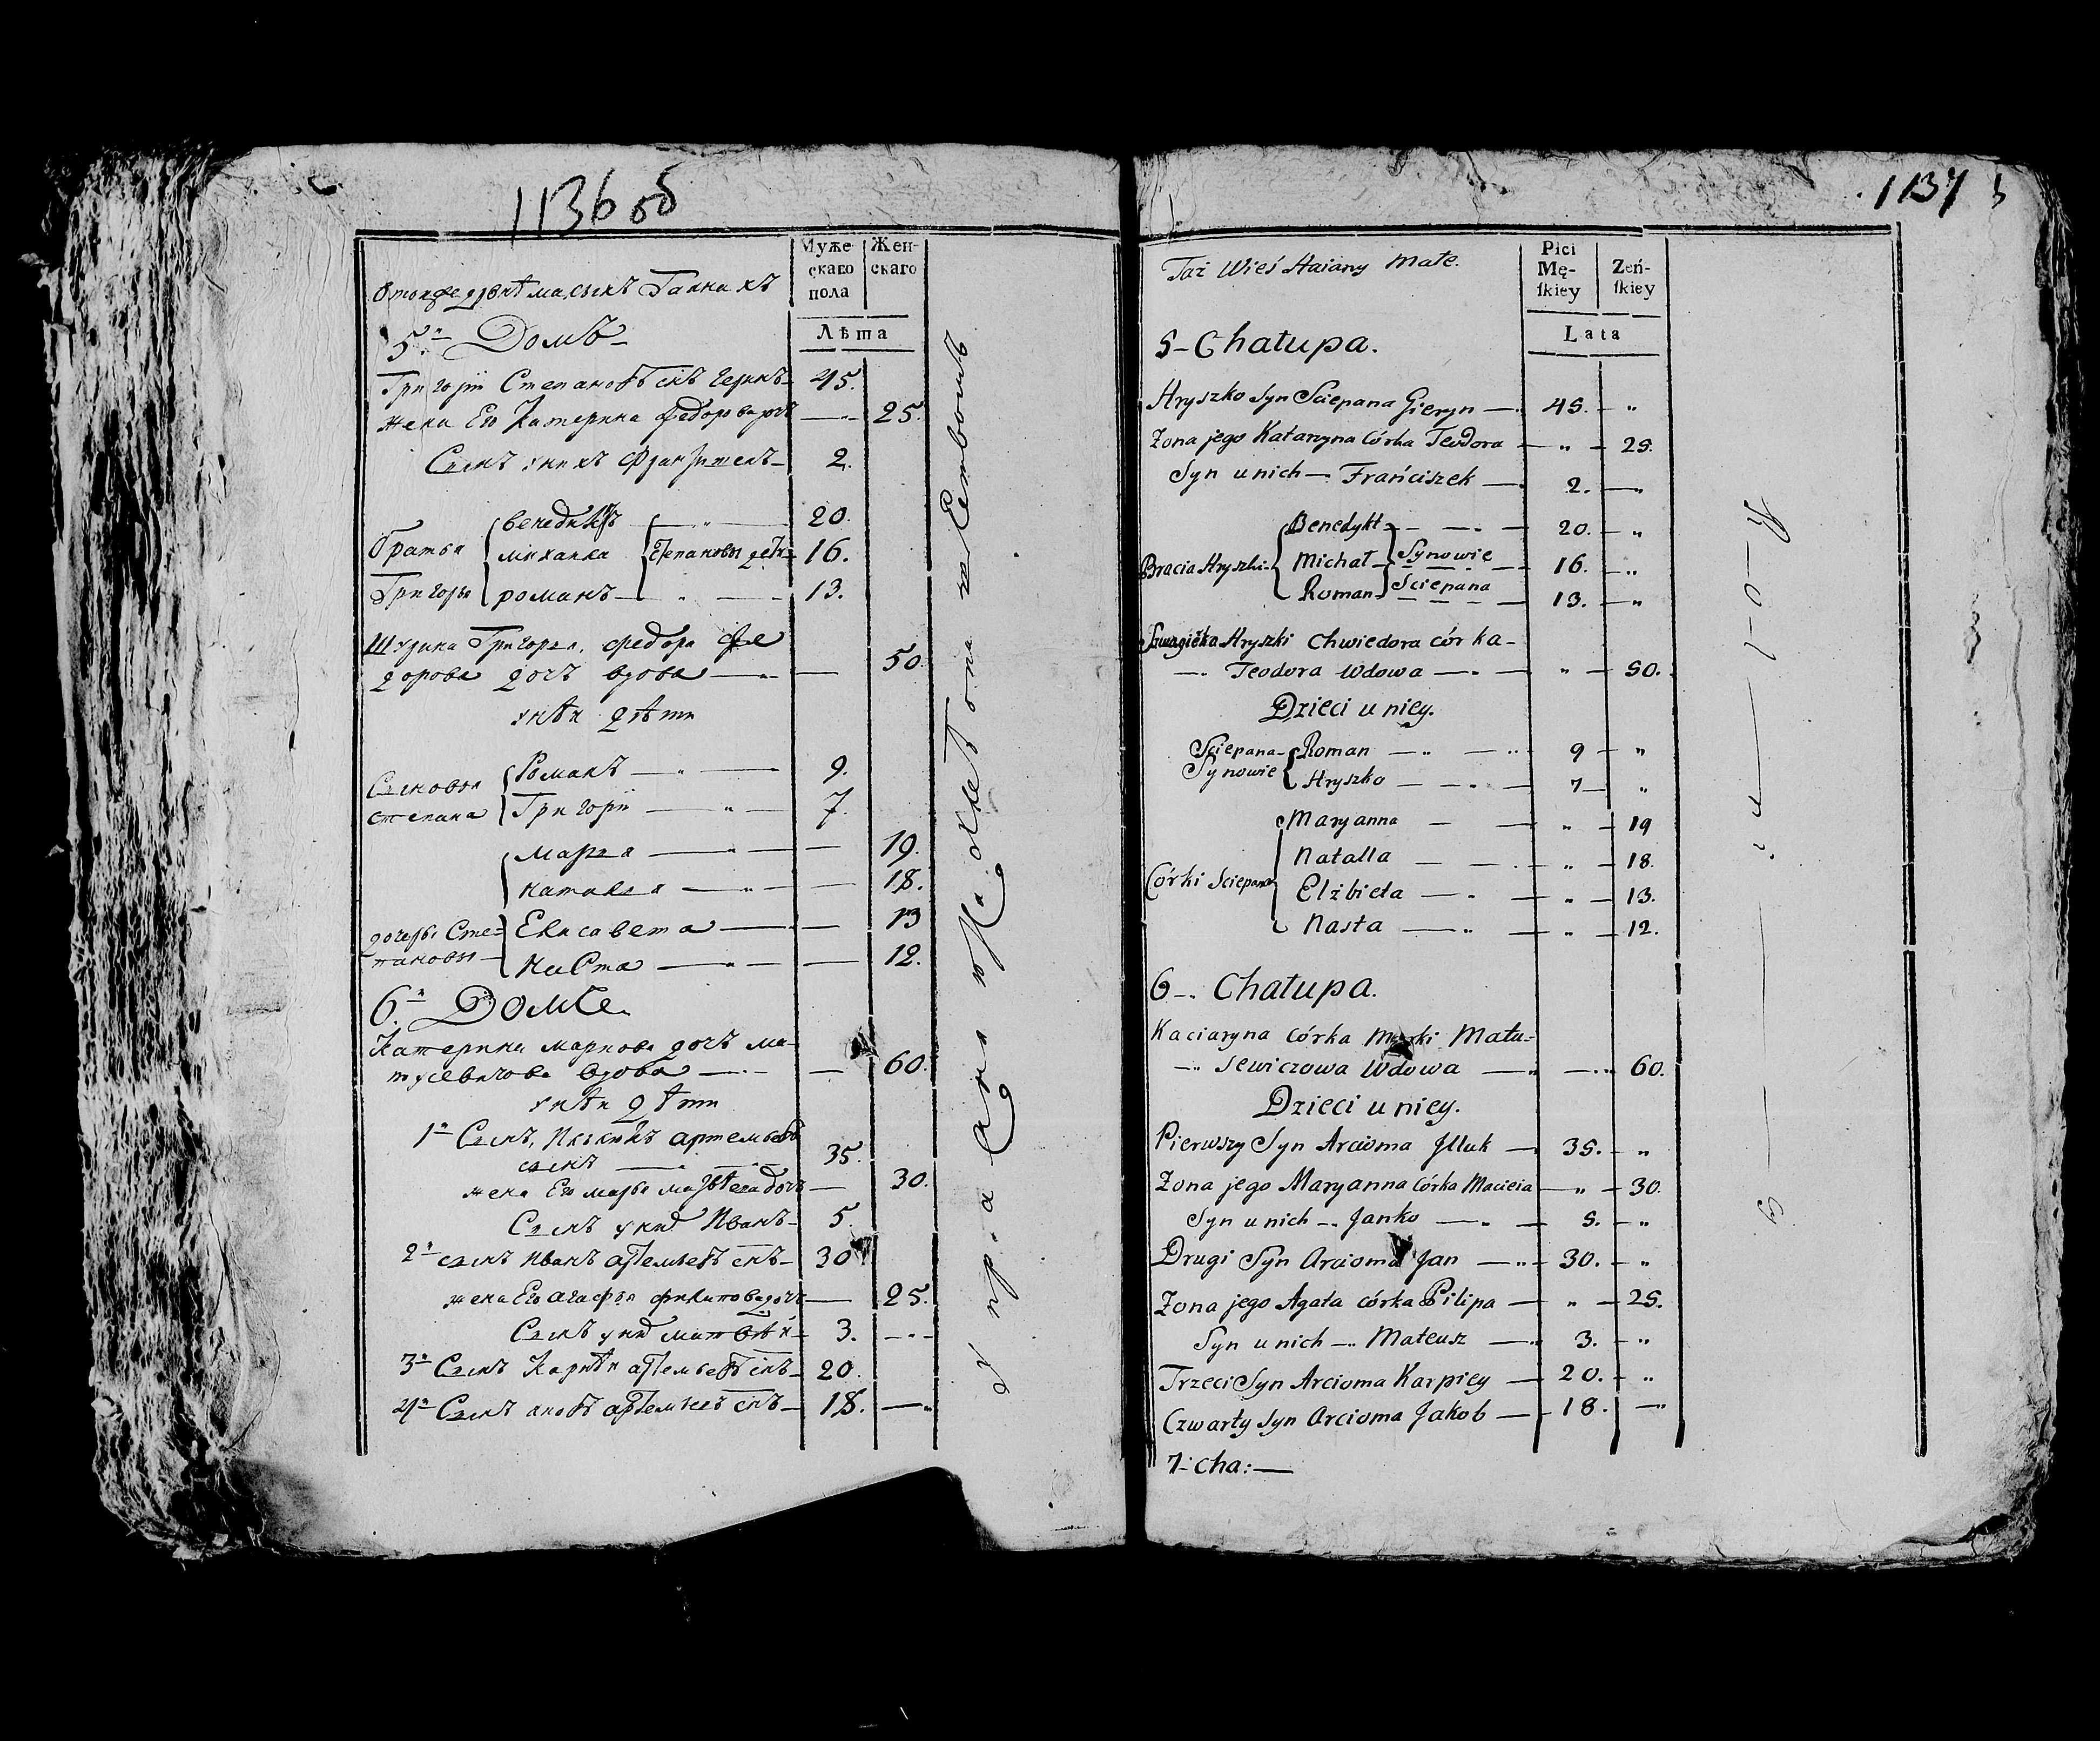 1136 об
Муже-
скаго
пола
Жен-
скаго
Лѣта
5.й Домъ
Григорій Степановъ снъ Геринъ 45.
жена Его Катерина Федорова дочь — 25.
Сынъ у нихъ 2.
Братья Григорья
Венедиктъ 20.
Михайла 16.
романъ 13.
Степановы дети
Григорья, федора Фе
дорова дочь вдова — 50.
у нѣи дѣти
Сыновья степана
Романъ 9.
Григорій 7.
дочерьи Сте-
пановы
Марья — 19.
наталья — 18.
Елисавета — 13
Наста — 12.
6.й Домъ
Катерина маркова дочь ма-
тусевичова вдова — 60.
у нѣи дѣти
1й Сынъ, артемьевъ
сынъ 35.
жена Его марья дочь — 30.
Сынъ у них Иванъ 5.
2й сынъ Иванъ артемьевъ снъ 30
жена Его агафья филипова дочь — 25.
Сынъ у них матвѣй 3.
3й Сынъ Карпѣй артемьевъ снъ 20.
4й Сынъ яковъ артемьевъ снъ 18.
1137
Taż Wieś Haiany Małe.
Płci
Mę-
skiey
Żeń-
skiey
Lata
5 - Chałupa.
Hryszko Syn Sciepana Gieryn — 45. — „
Żona jego Katarzyna Córka Teodora — „ — 25.
Syn u nich — Frańciszek — 2. — „
Bracia Hryszki
Benedykt — 20. — „
Michał — 16. — „
Roman — 13. — „
Synowie
Sciepana
Hryszki Chwiedora córka -
Teodora Wdowa — „ — 50.
Dzieci u niey.
Sciepana
Synowie
Roman — 9 — „
Hryszko — 7 — „
Córki Sciepana
Maryanna — „ — 19
Natalla — „ — 18.
Elżbieta — „ — 13.
Nasta — „ — 12.
6 - Chałupa.
Kaciaryna Córka Marki Matu-
sewiczowa Wdowa — 60.
Dzieci u niey.
Pierwszy Syn Arcioma Jlluk — 35. — „
Żona jego Maryanna Córka Macieia — „ — 30.
Syn u nich — Janko — 5. — „
Drugi Syn Arcioma Jan — 30. — „
Żona jego Agata córka Pilipa — „ — 25.
Syn u nich — Mateusz — 3. — „
Trzeci Syn Arcioma Karpiey — 20. — „
Czwarty Syn Arcioma Jakob — 18. —
7 - Cha: —